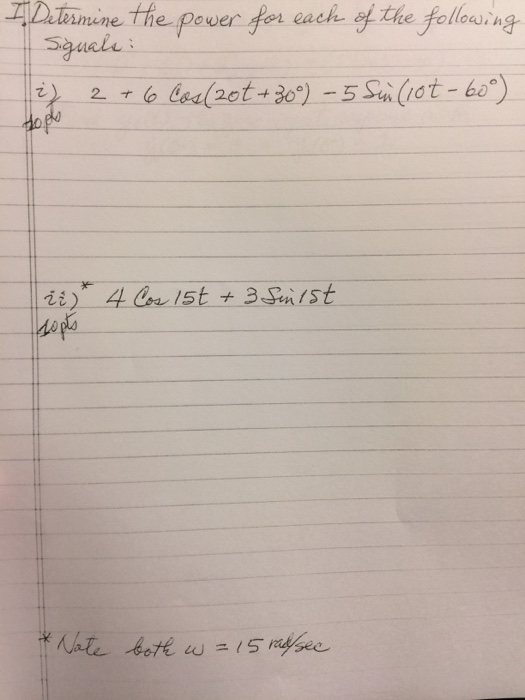 I. Determine the power for each of the following
Signals:
i) 2 + 6 Cos(20t + 30°) - 5 Sin(10t - 60°)
10pts
ii)* 4 Cos 15t + 3 Sin 15t
10pts
* Note both w = 15 rad/sec